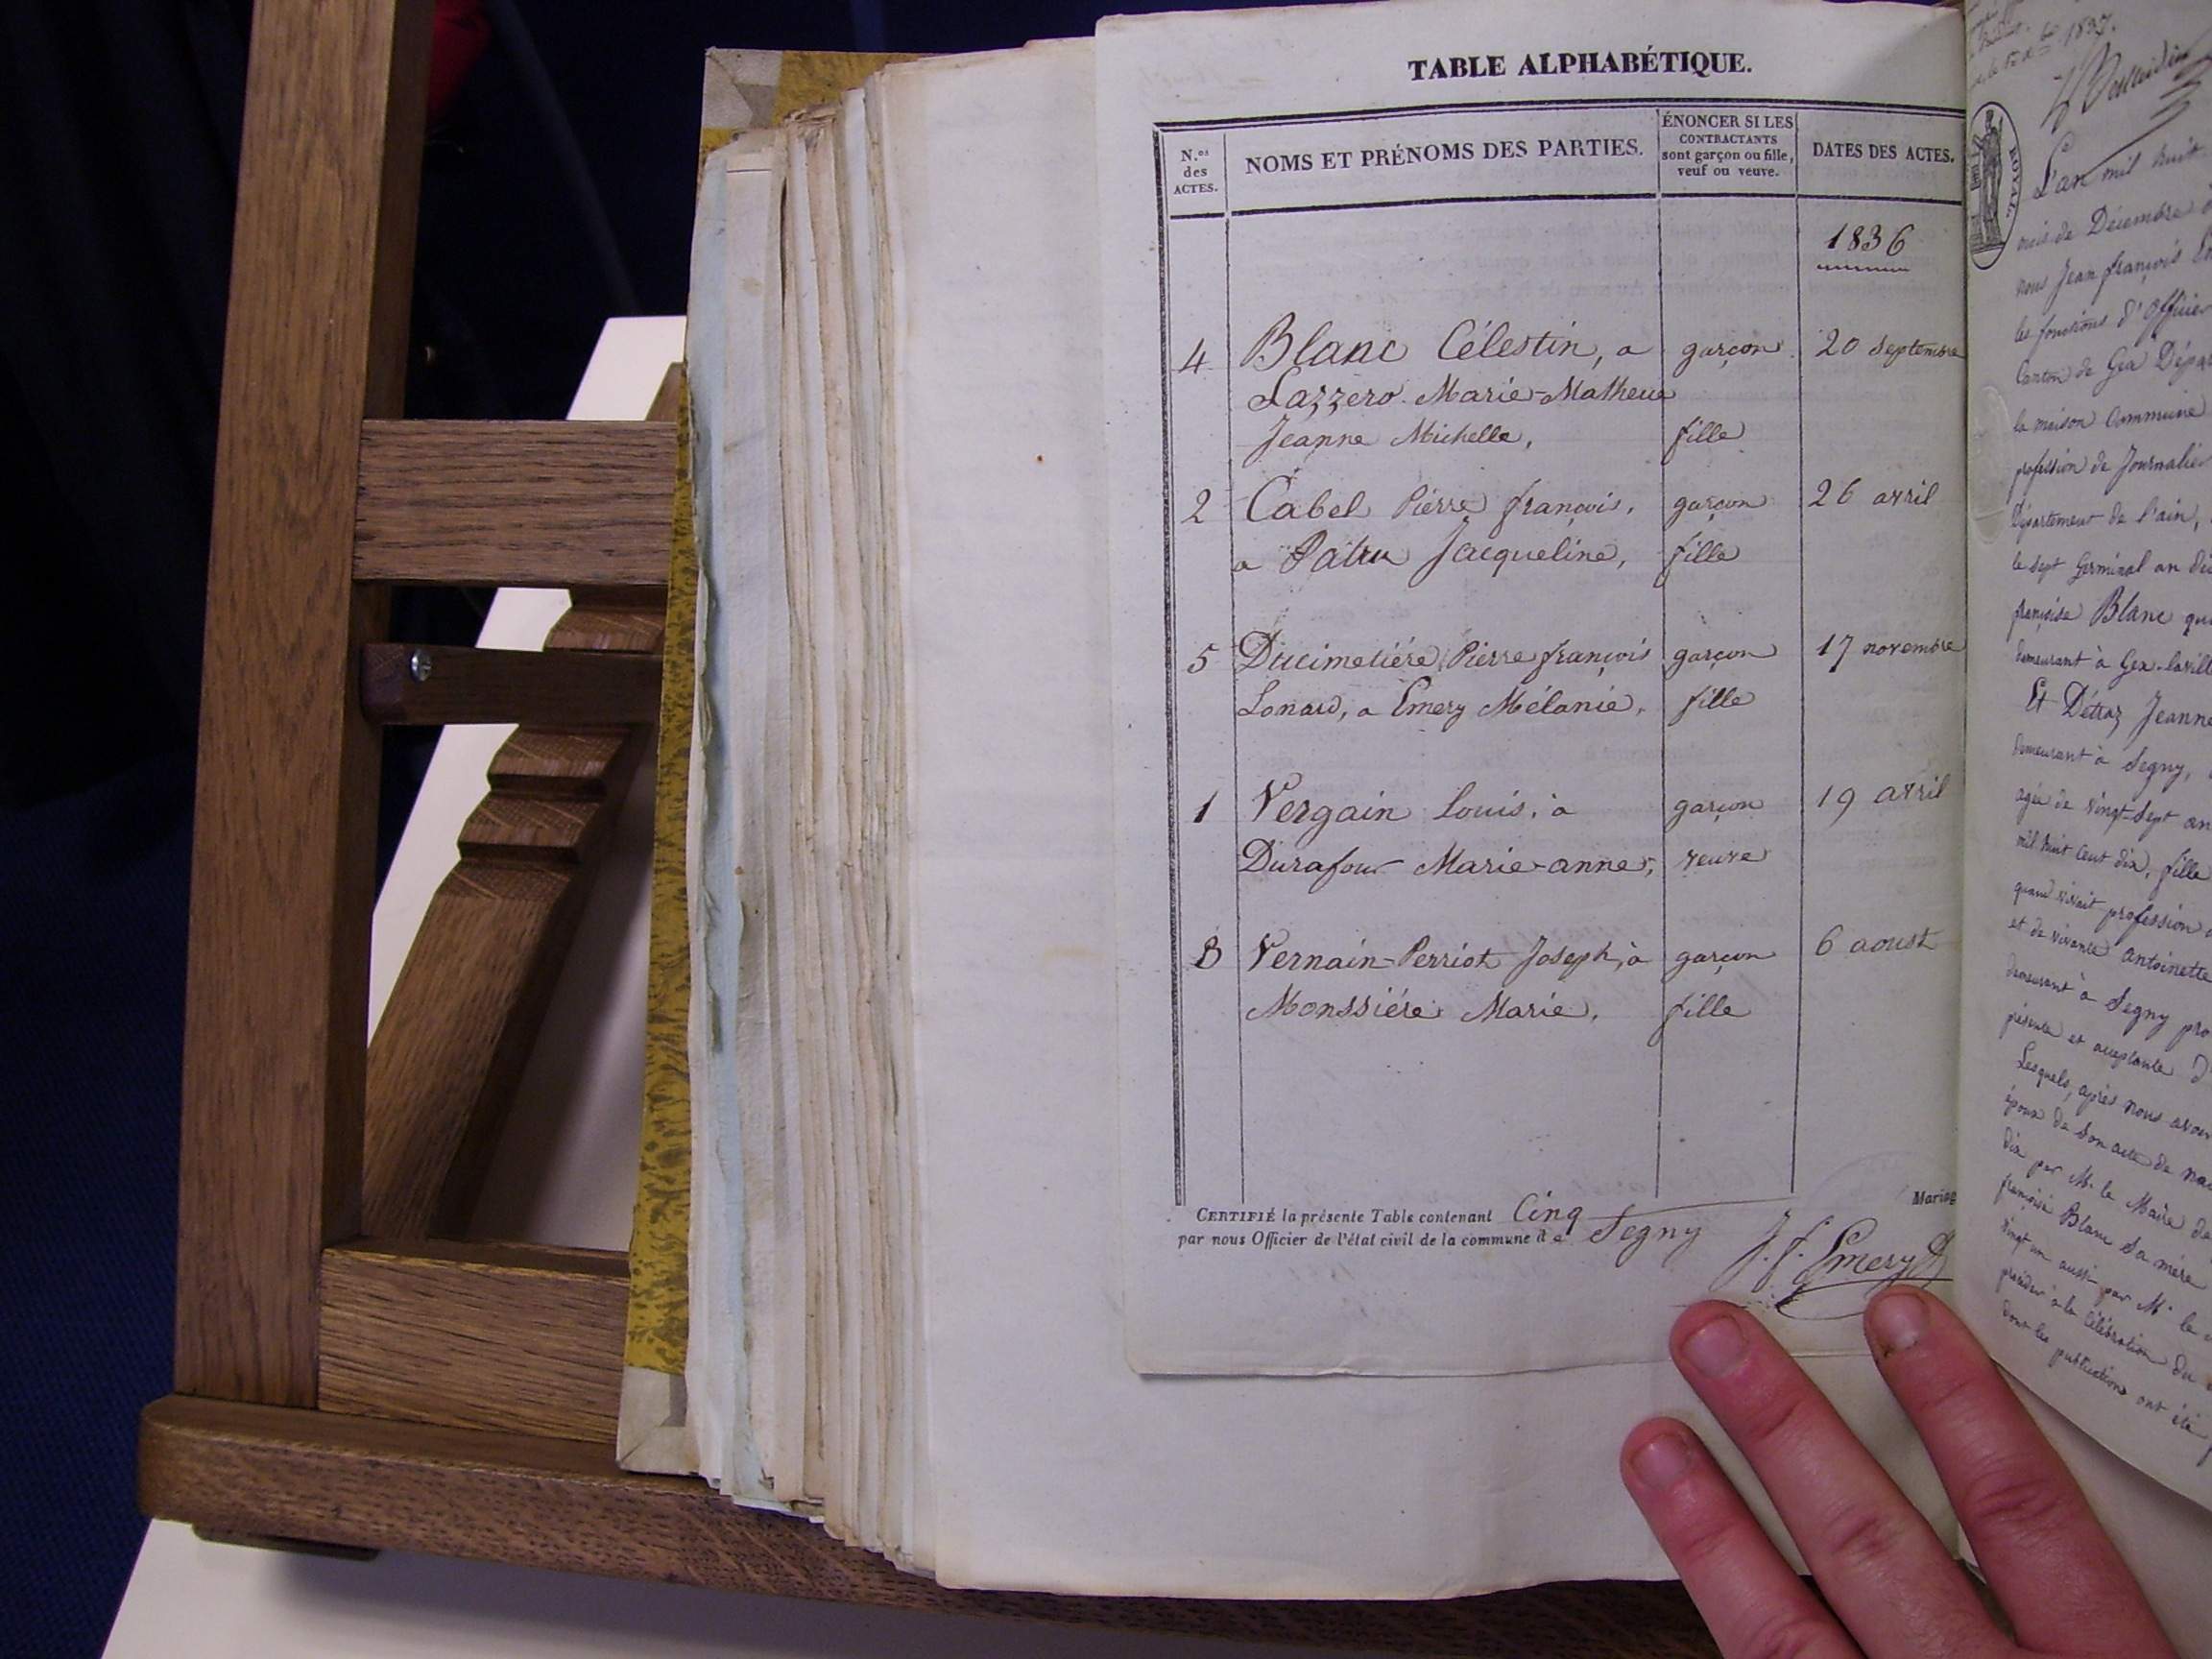 TABLE ALPHABÉTIQUE.
N.os des ACTES.
NOMS ET PRÉNOMS DES PARTIES.
ÉNONCER SI LES
CONTRACTANTS
sont garçon ou fille,
veuf ou veuve.
DATES DES ACTES.
1836
4 Blanc Célestin, a garçon 20 septembre
Lazzero Marie-Matheue
Jeanne Michelle, fille
2 Cabel Pierre françois, garçon 26 avril
a Patru Jacqueline, fille
5 Ducimetiére Pierre françois garçon 17 novembre
Lonard, a Emery Mélanie, fille
1 Vergain Louis, à garçon 19 avril
Durafour Marie-anne, veuve
3 Vernain-Perriot Joseph, à garçon 6 aoust
Monssiére Marie, fille
CERTIFIÉ la présente Table contenant Cinq Mariag
par nous Officier de l'état civil de la commune de Segny
J. f. Emery
1837.
ROYAL.
L'an mil huit
mois de Décembre
nous Jean françois
les fonctions d'officier
Canton de Gex Dépar
la maison Commune
profession de Journalier
Département de l'ain,
le sept Germinal an di
françoise Blanc qui
demeurant à Gex-laville
Et Détraz Jeanne
demeurant à Segny,
agée de vingt-sept an
mil huit cent dix, fille
quand vivait profession
et de vivante antoinette
demeurant à Segny pro
présente et acceptante D
Lesquels, après nous avoir
époux de son acte de nai
dix par M. le Maire de
françoise Blanc Sa mère
vingt un aussi par M. le
procéder à la Célébration du
dont les publications ont été